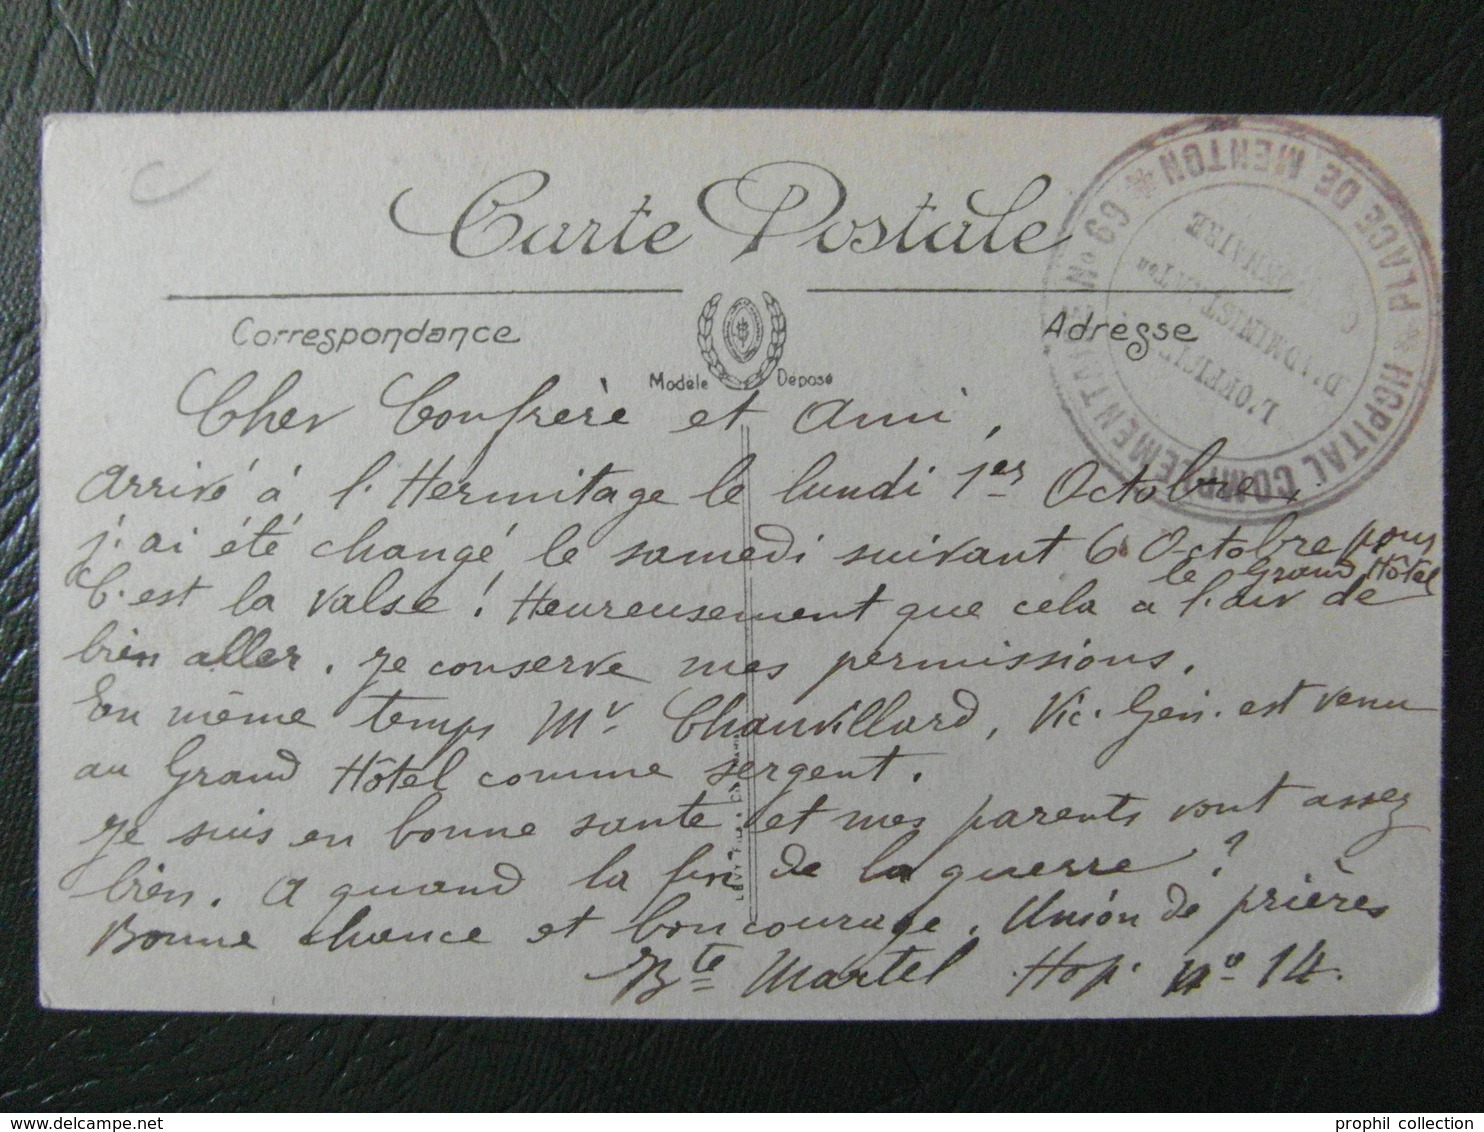 Carte Postale
Correspondance
Adresse
Modèle Déposé
PLACE DE MENTON * HOPITAL COMPLEMENTAIRE No 69 *
L'OFFICIER
D'ADMINISTRATon
GESTIONNAIRE
Cher Confrère et Ami,
Arrivé à l'Hermitage le lundi 1er Octobre,
j'ai été changé le samedi suivant 6 Octobre pour
le Grand Hôtel
C'est la valse ! Heureusement que cela a l'air de
bien aller. Je conserve mes permissions.
En même temps Mr Chauvillard, Vic. Gén. est venu
au Grand Hôtel comme sergent.
Je suis en bonne santé et mes parents vont assez
bien. A quand la fin de la guerre ?
Bonne chance et bon courage. Union de prières
Bte Martel Hop. no 14.
prophil collection